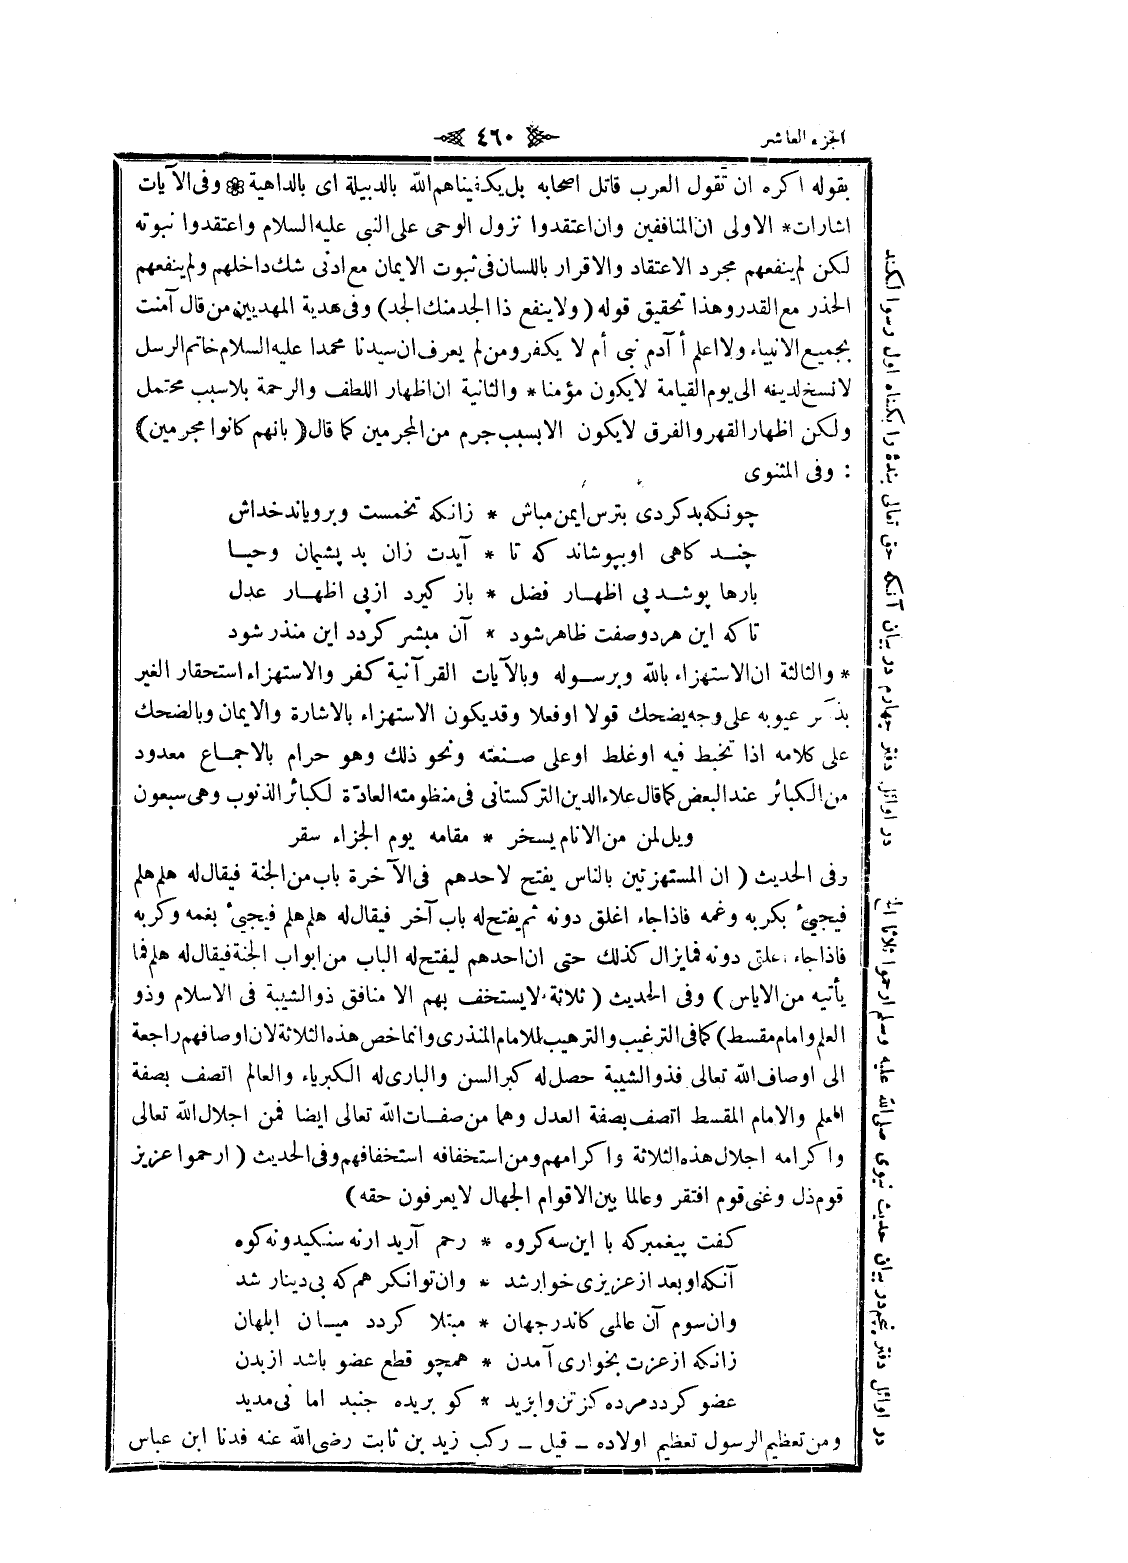 الجزء العاشر
٤٦٠
بقوله اكره ان تقول العرب قاتل اصحابه بل يكفيناهم الله بالدبيلة اى بالداهية ❀ وفى الآيات
اشارات * الاولى ان المنافقين وان اعتقدوا نزول الوحى على النبى عليه السلام واعتقدوا نبوته
لكن لم ينفعهم مجرد الاعتقاد والاقرار باللسان فى ثبوت الايمان مع ادنى شك داخلهم ولم ينفعهم
الحذر مع القدر وهذا تحقيق قوله ( ولا ينفع ذا الجد منك الجد ) وفى هدية المهديين من قال آمنت
بجميع الانبياء ولا اعلم أ آدم نبى أم لا يكفر ومن لم يعرف ان سيدنا محمدا عليه السلام خاتم الرسل
لا نسخ لدينه الى يوم القيامة لا يكون مؤمنا * والثانية ان اظهار اللطف والرحمة بلا سبب محتمل
ولكن اظهار القهر والفرق لا يكون الا بسبب جرم من المجرمين كما قال ( بانهم كانوا مجرمين )
: وفى المثنوى
چونكه بد كردى بترس ايمن مباش * زانكه تخمست وبروياند خداش
چند كاهى او بپوشاند كه تا * آيدت زان بد پشيمان وحيا
بارها پوشد پى اظهار فضل * باز كيرد از پى اظهار عدل
تا كه اين هر دو صفت ظاهر شود * آن مبشر كردد اين منذر شود
* والثالثة ان الاستهزاء بالله وبرسوله وبالآيات القرآنية كفر والاستهزاء استحقار الغير
بذكر عيوبه على وجه يضحك قولا او فعلا وقد يكون الاستهزاء بالاشارة والايمان وبالضحك
على كلامه اذا تخبط فيه او غلط او على صنعته ونحو ذلك وهو حرام بالاجماع معدود
من الكبائر عند البعض كما قال علاء الدين التركستانى فى منظومته العادّة لكبائر الذنوب وهى سبعون
ويل لمن من الانام يسخر * مقامه يوم الجزاء سقر
وفى الحديث ( ان المستهزئين بالناس يفتح لاحدهم فى الآخرة باب من الجنة فيقال له هلم هلم
فيجيئ بكربه وغمه فاذا جاء اغلق دونه ثم يفتح له باب آخر فيقال له هلم هلم فيجيئ بغمه وكربه
فاذا جاء اغلق دونه فما يزال كذلك حتى ان احدهم ليفتح له الباب من ابواب الجنة فيقال له هلم فما
يأتيه من الاياس ) وفى الحديث ( ثلاثة لا يستخف بهم الا منافق ذو الشيبة فى الاسلام وذو
العلم وامام مقسط ) كما فى الترغيب والترهيب للامام المنذرى وانما خص هذه الثلاثة لان اوصافهم راجعة
الى اوصاف الله تعالى فذو الشيبة حصل له كبر السن والبارى له الكبرياء والعالم اتصف بصفة
العلم والامام المقسط اتصف بصفة العدل وهما من صفات الله تعالى ايضا فمن اجلال الله تعالى
واكرامه اجلال هذه الثلاثة واكرامهم ومن استخفافه استخفافهم وفى الحديث ( ارحموا عزيز
قوم ذل وغنى قوم افتقر وعالما بين الاقوام الجهال لا يعرفون حقه )
كفت پيغمبر كه با اين سه كروه * رحم آريد ار نه سنكيد ونه كوه
آنكه او بعد از عزيزى خوار شد * وان توانكر هم كه بى دينار شد
وان سوم آن عالمى كاندر جهان * مبتلا كردد ميان ابلهان
زانكه از عزت بخوارى آمدن * همچو قطع عضو باشد از بدن
عضو كردد مرده كز تن وا بريد * كو بريده جنبد اما نى مديد
ومن تعظيم الرسول تعظيم اولاده – قيل – ركب زيد بن ثابت رضى الله عنه فدنا ابن عباس
در اوائل دفتر چهارم در بيان آنكه حق تعالى بندۀ را بكناه اول رسوا نكند
در اوائل دفتر پنجم در بيان حديث نبوى صلى الله عليه وسلم ارحموا ثلاثا الخ